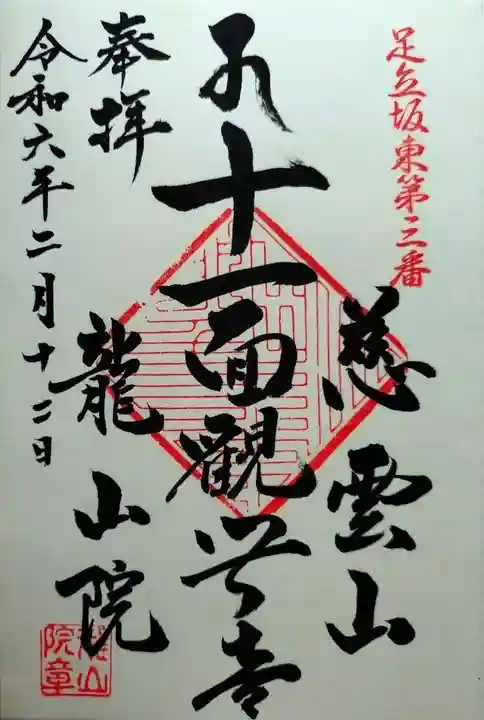 足立坂東第三番
慈雲山
十一面觀世音
奉拝
龍山院
令和六年二月十二日